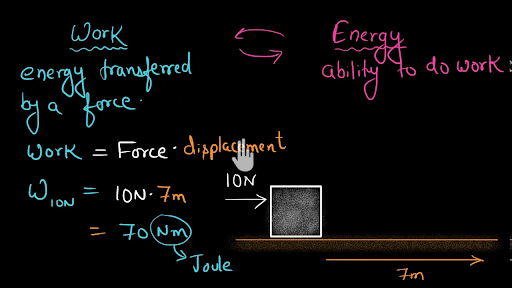 Work
energy transferred
by a force.
Work = Force · displacement
W10N = 10N · 7m
= 70 Nm
Joule
Energy
ability to do work:
10N
7m